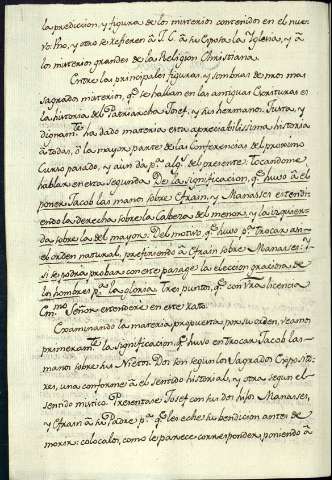 la prediccion, y figura de los misterios contenidos en el nue-
vo. Pro, y otro se refieren à J. C. à su Esposa la Yglesia, y à
los misterios grandes de la Religion Christiana.
Entre las principales figuras, y sombras de nros mas
sagrados misterios, q.e se hallan en las antiguas Escrituras es
la historia del Patriarcha Josef, y sus hermanos. Justa, y
dignam.te ha dado materia esta apreciabilissima historia
à todas, ô la mayor parte de las Conferencias del proximo
Curso pasado, y aun dà p.a alg.s del presente. Tocandome
hablar en esta segunda De la significacion, q.e huvo â el
poner Jacob las manos sobre Efrain, y Manases estendi-
endo la derecha sobre la Cabeza del menor, y la izquier-
da sobre la del mayor. Del motivo, q.e huvo p.a trocar asi
el orden natural, prefiriendo à Efrain sobre Manases: y
si se podra probar con este pasage la eleccion graciosa de
los hombres p.a la gloria: tres puntos, q.e con Vra licencia
Señor entenderè en este rato.
Examinando la materia propuesta por su orden, veamos
primeram.te la significacion, q.e huvo en trocar Jacob las
manos sobre sus Nietos. Dos son segun los Sagrados Exposito-
res, una conforme à el sentido historial, y otra segun el
sentido mistico. Presentase Josef con sus dos hijos Manases,
y Efrain â su Padre p.a q.e les eche su bendicion antes de
morir: colocalos, como le parece corresponder, poniendo à